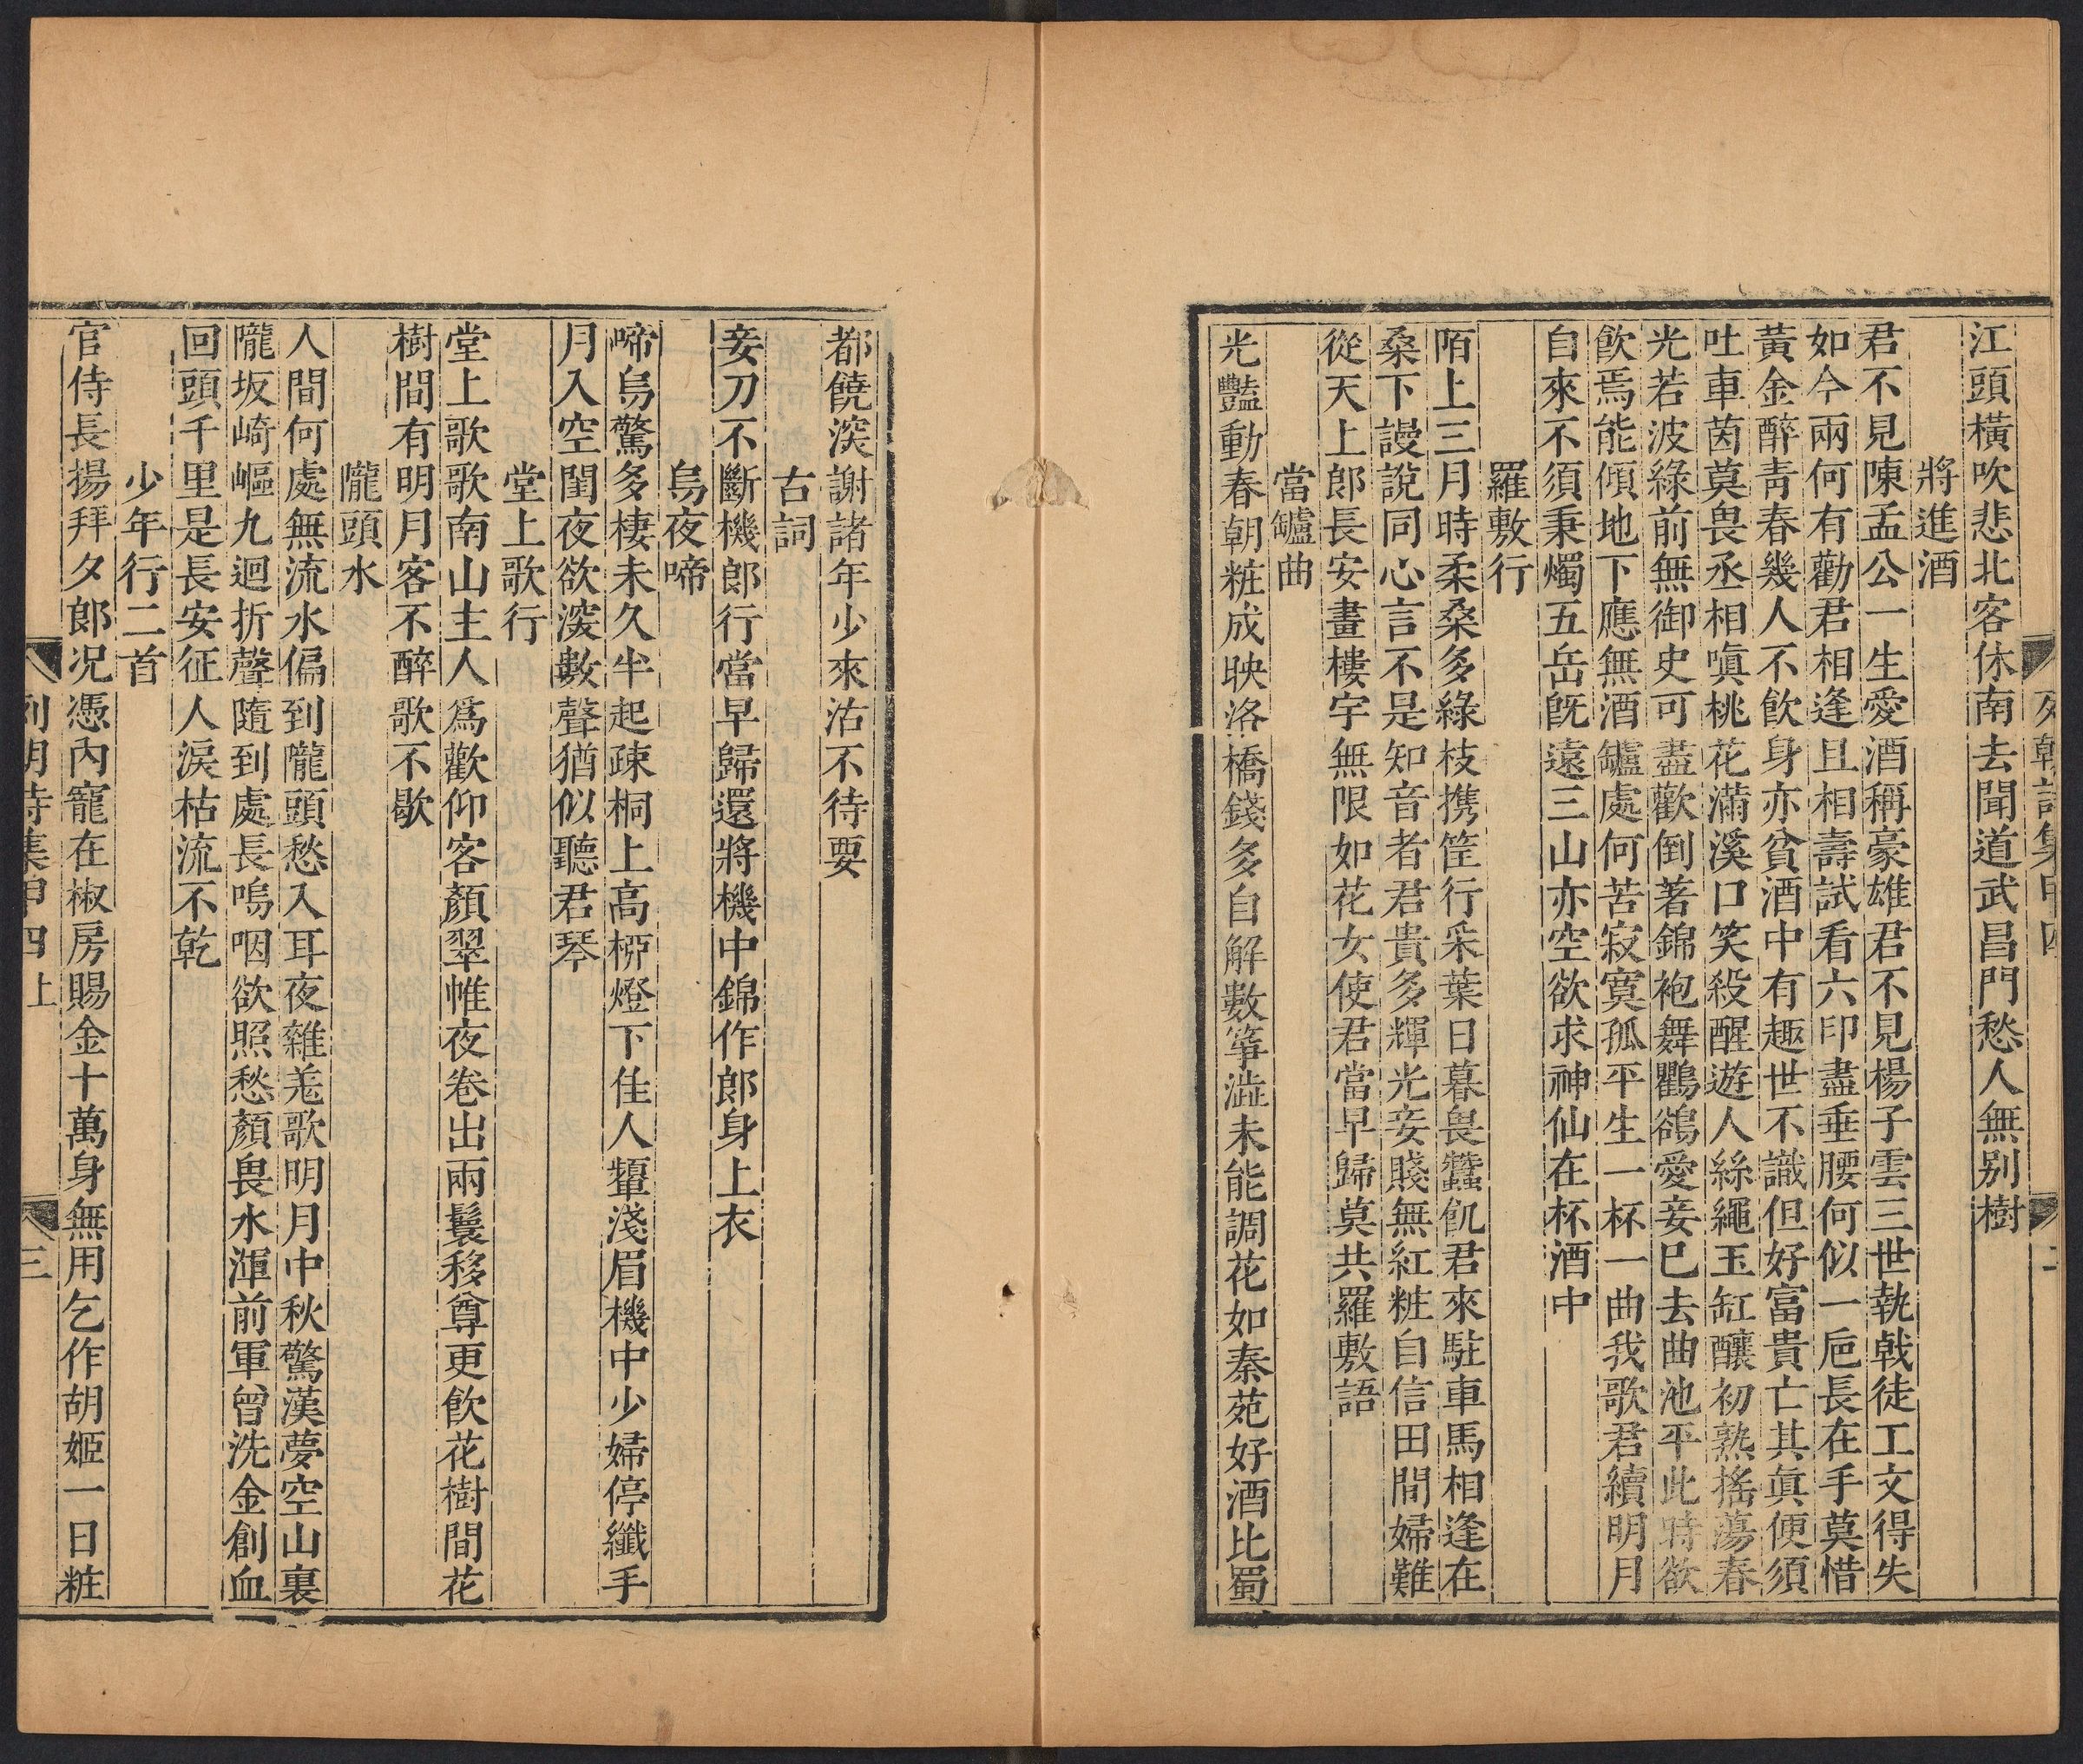 江頭橫吹悲北客休南去聞道武昌門愁人無別樹
將進酒
君不見陳孟公一生愛酒稱豪雄君不見楊子雲三世執戟徒工文得失
如今兩何有勸君相逢且相壽試看六印盡垂腰何似一巵長在手莫惜
黃金醉青春幾人不飲身亦貧酒中有趣世不識但好富貴亡其眞便須
吐車茵莫畏丞相嗔桃花滿溪口笑殺醒遊人絲繩玉缸釀初熟搖蕩春
光若波綠前無御史可盡歡倒著錦袍舞鸜鵒愛妾已去曲池平此時欲
飲焉能傾地下應無酒罏處何苦寂寞孤平生一杯一曲我歌君續明月
自來不須秉燭五岳旣遠三山亦空欲求神仙在杯酒中
羅敷行
陌上三月時柔桑多綠枝携筐行采葉日暮畏蠶飢君來駐車馬相逢在
桑下謾說同心言不是知音者君貴多輝光妾賤無紅粧自信田間婦難
從天上郎長安畫樓宇無限如花女使君當早歸莫共羅敷語
當罏曲
光豔動春朝粧成映洛橋錢多自解數箏澁未能調花如秦苑好酒比蜀
都饒深謝諸年少來沽不待要
古詞
妾刀不斷機郎行當早歸還將機中錦作郎身上衣
烏夜啼
啼烏驚多棲未久半起疎桐上高桺燈下佳人顰淺眉機中少婦停纖手
月入空閨夜欲深數聲猶似聽君琴
堂上歌行
堂上歌歌南山主人爲歡仰客顏翠帷夜卷出兩鬟移尊更飲花樹間花
樹間有明月客不醉歌不歇
隴頭水
人間何處無流水偏到隴頭愁入耳夜雜羌歌明月中秋驚漢夢空山裏
隴坂崎嶇九迴折聲隨到處長嗚咽欲照愁顏畏水渾前軍曾洗金創血
回頭千里是長安征人淚枯流不乾
少年行二首
官侍長揚拜夕郎况憑內寵在椒房賜金十萬身無用乞作胡姬一日粧
列朝詩集甲四上
三